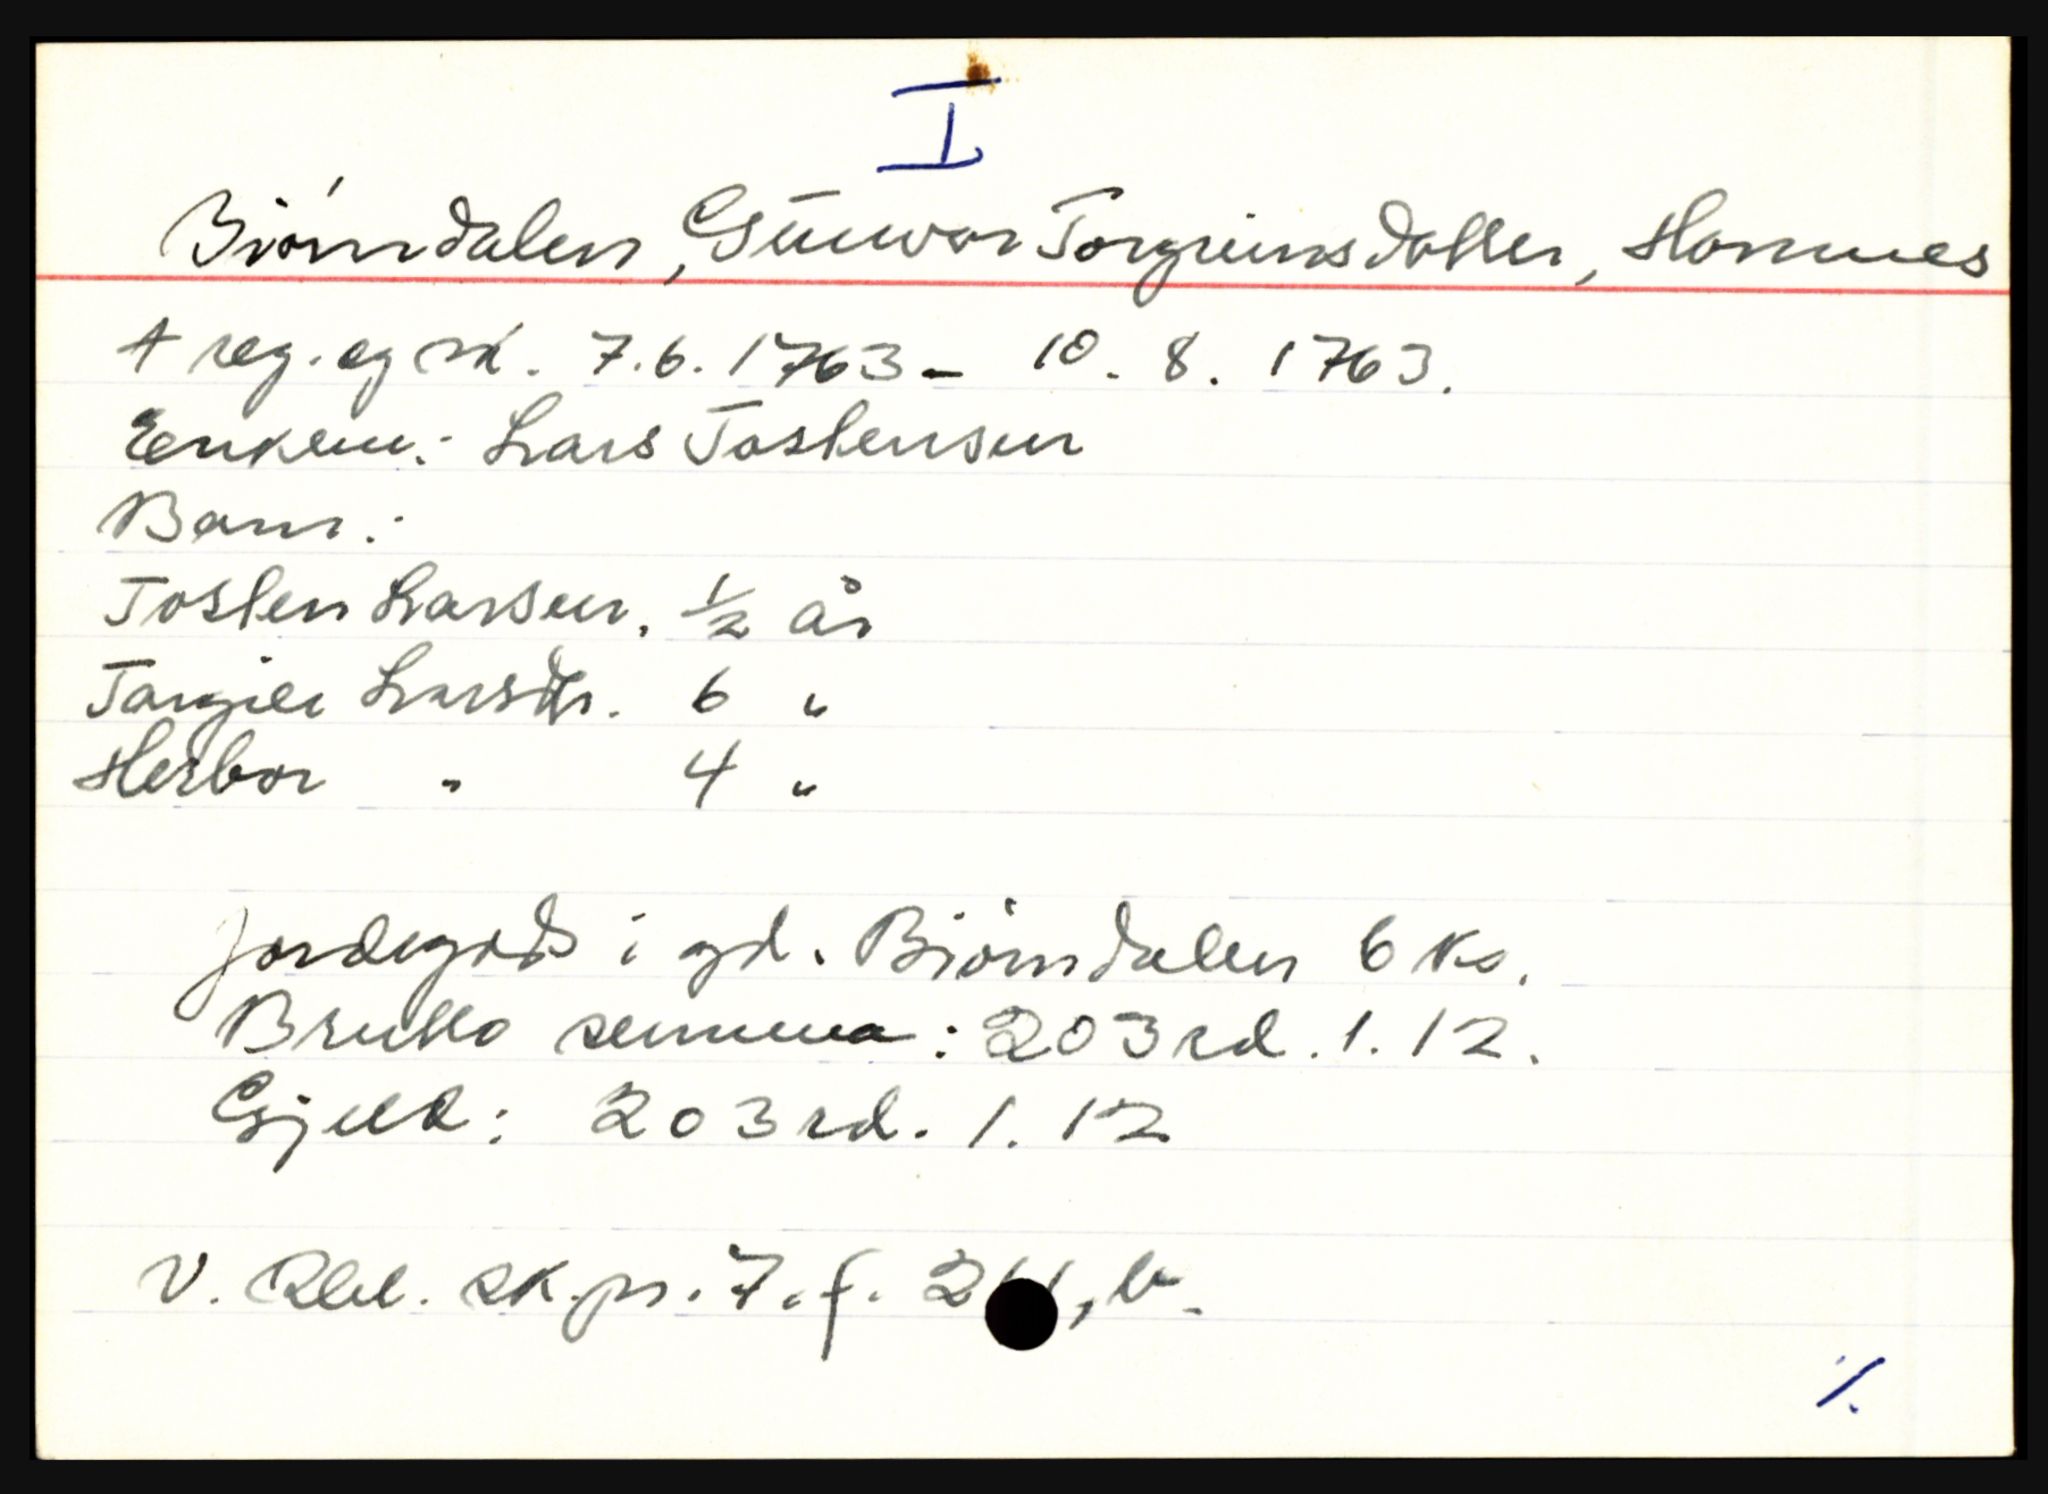 I
Bjørndalen, Gunvor Torgrimsdatter, Hommes
A reg. og sk. 7.6.1763 - 10.8.1763.
Enkem.: Lars Tostensen
Barn:
Tosten Larsen. ½ år
Torgier Larsdtr. 6 "
Herbor " 4 "
Jordegods i gd. Bjørndalen 6 ks.
Brutto summa: 203 rd. 1. 12.
Gjeld: 203 rd. 1. 12
V. Rbl. sk.pr. 7. f. , b.